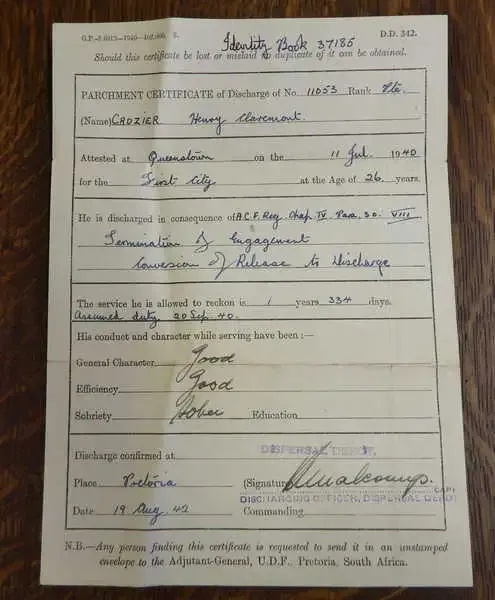 G.P.-S.6013—1940—102,000. S.
D.D. 342.
Identity Book 37185
Should this certificate be lost or mislaid no duplicate of it can be obtained.
PARCHMENT CERTIFICATE of Discharge of No. 11053 Rank Pte.
(Name) CROZIER Henry Claremont.
Attested at Queenstown on the 11 Jul. 1940
for the First City at the Age of 26 years.
He is discharged in consequence of A.C.F. Reg. Chap. IV Para. 30. VIII
Termination of Engagement
Conversion of Release to Discharge
The service he is allowed to reckon is 1 years 334 days.
Assumed duty 20 Sep. 40.
His conduct and character while serving have been :—
General Character Good
Efficiency Good
Sobriety Sober Education
Discharge confirmed at
DISPERSAL DEPOT,
Place Pretoria (Signature)
CAPT.
DISCHARGING OFFICER, DISPERSAL DEPOT
Date 19 Aug 42 Commanding
N.B.—Any person finding this certificate is requested to send it in an unstamped
envelope to the Adjutant-General, U.D.F., Pretoria, South Africa.